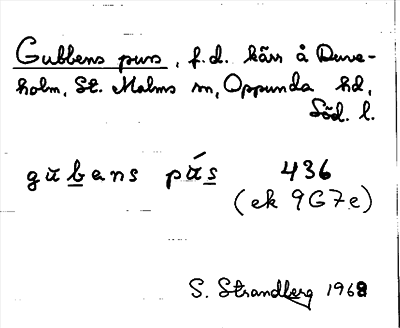 Gubbens purs, f.d. kärr å Duve-
holm, St. Malms sn, Oppunda hd,
Söd. l.
gubens pus 436
(ek 9G7e)
S. Strandberg 1968